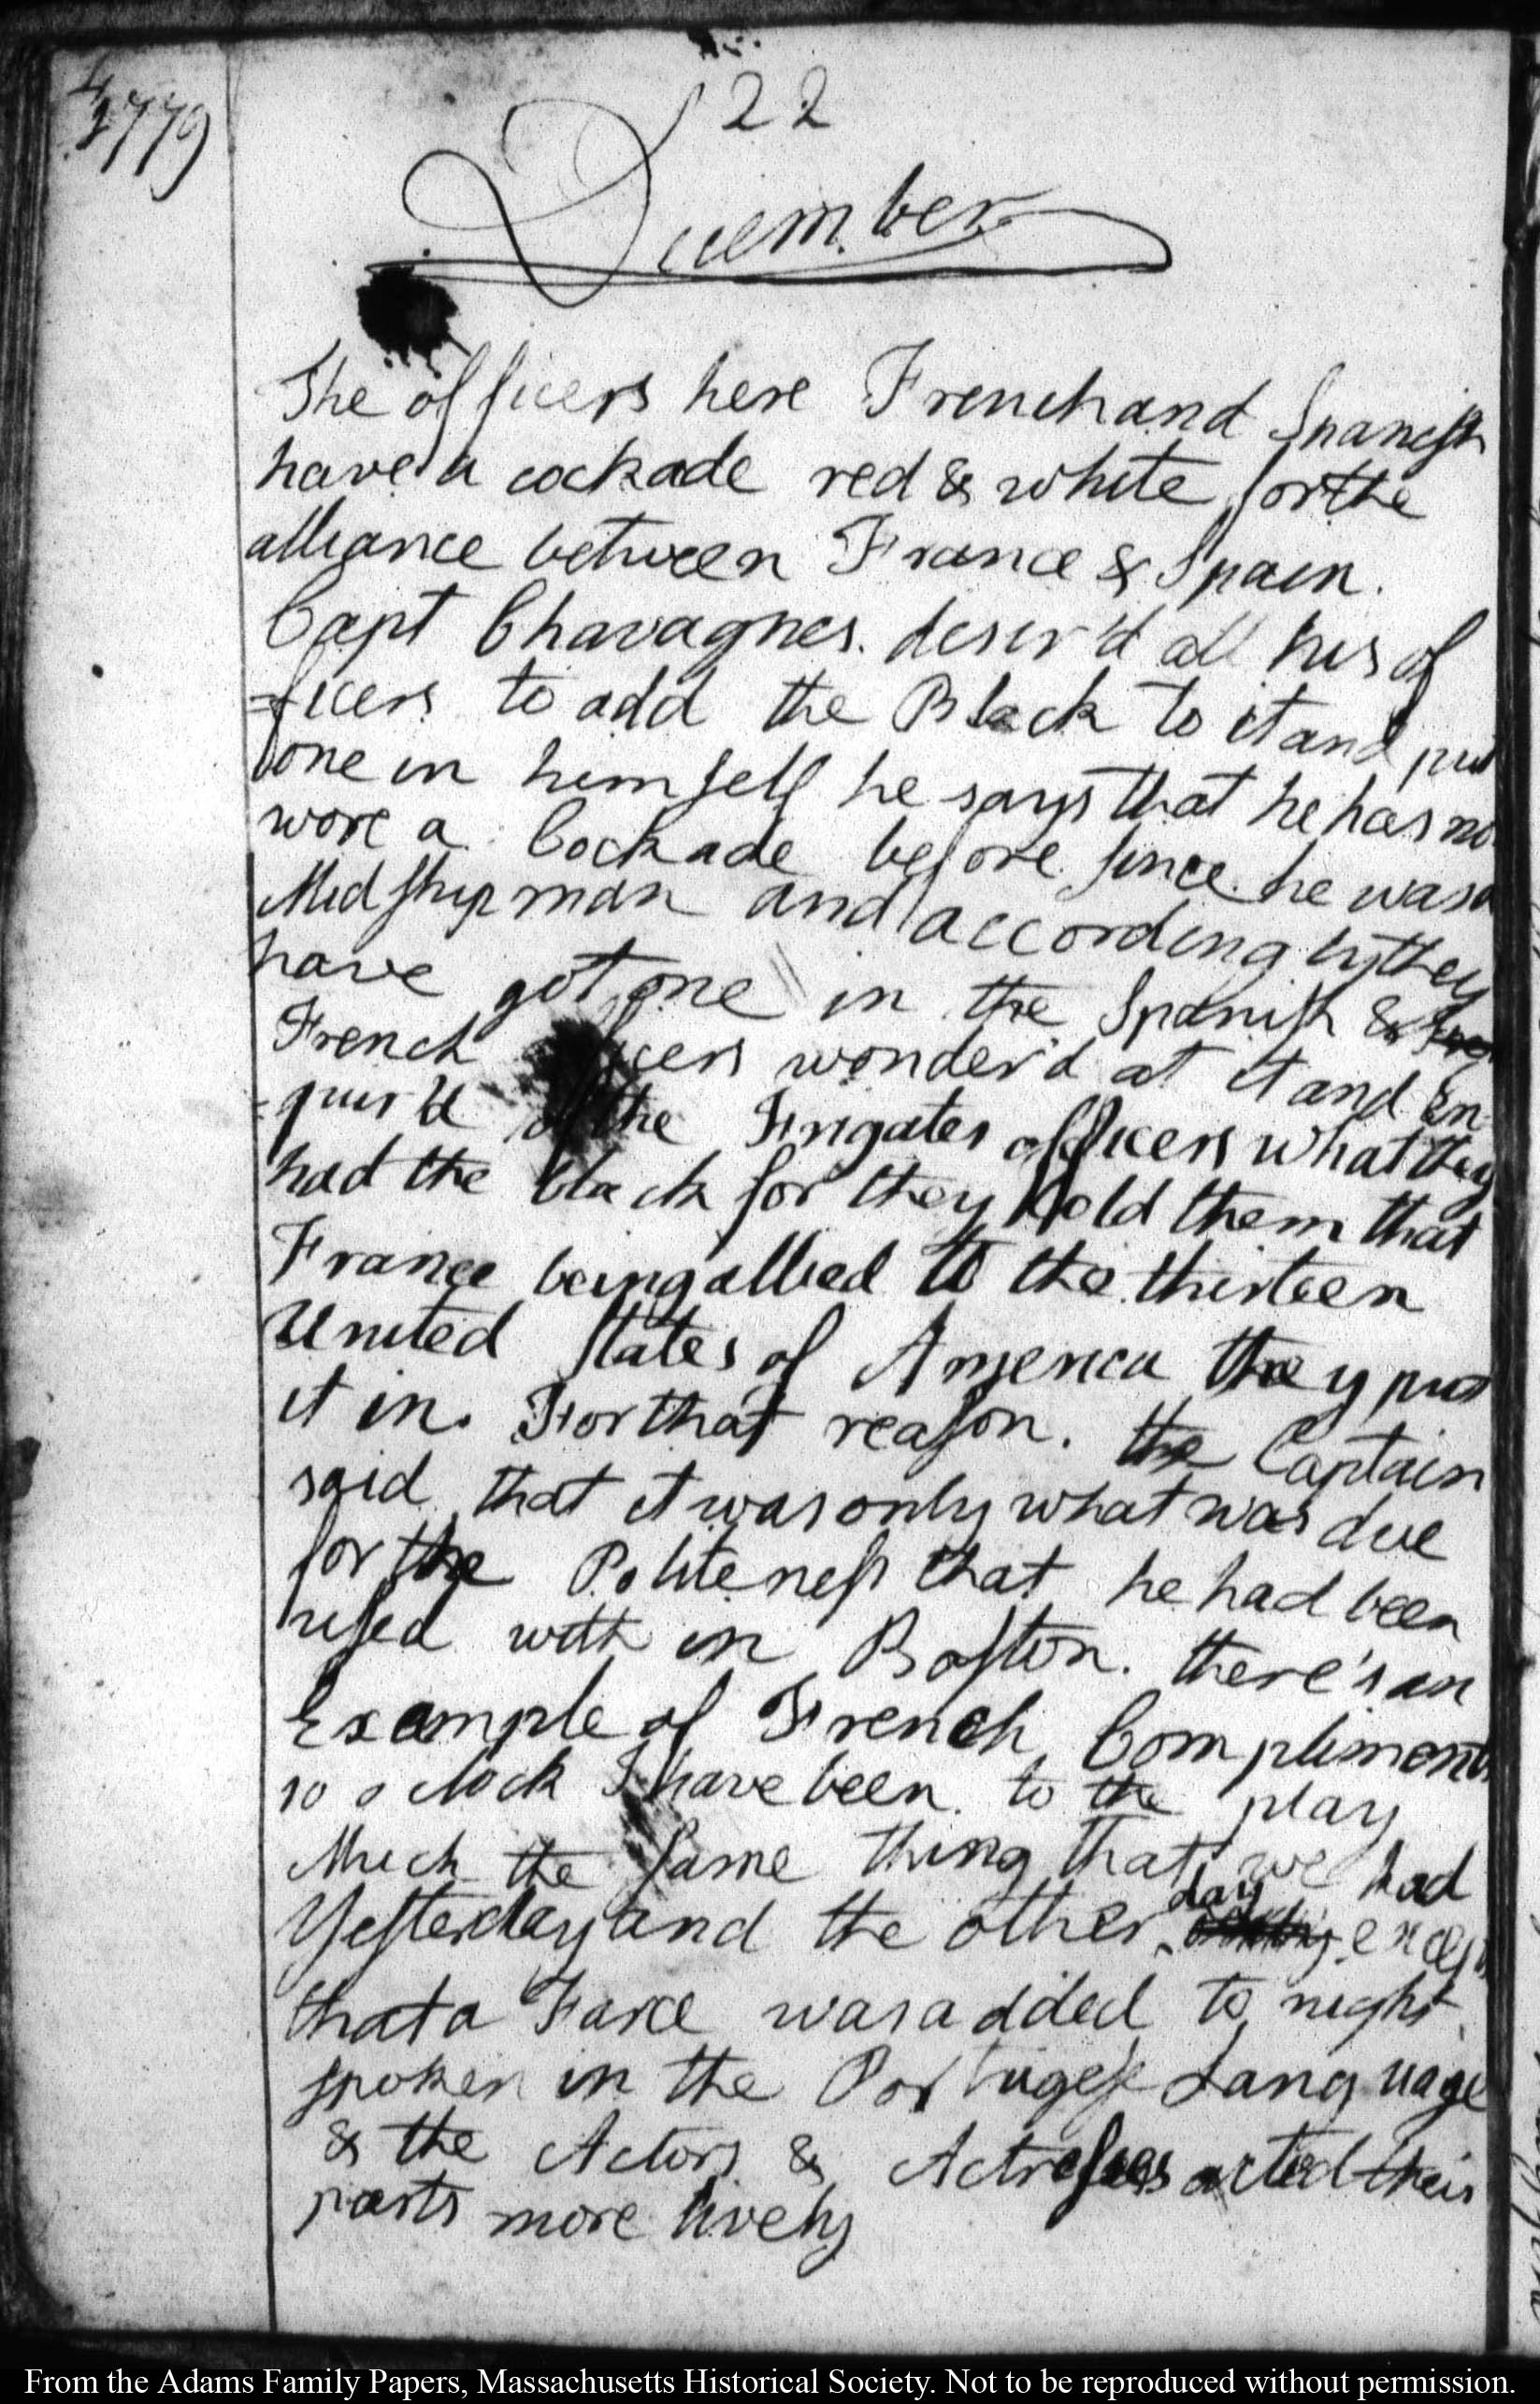 1779
22
December
The officers here French and Spanish
have a cockade red & white for the
alliance between France & Spain.
Capt Chavagnes. desir'd all his of
=ficers to add the Black to it and put
one in himself he says that he has no
wore a Cockade before since he was a
Midshipman and accordingly they
have got one in the Spanish &
French officers wonder'd at it and En
=quir'd of the Frigates officers what they
had the black for they told them that
France being allied to the thirteen
United States of America they put
it in. For that reason. the Captain
said that it was only what was due
for the Politeness that he had been
used with in Boston. there's an
Example of French Compliments
10 o clock I have been to the play
Much the same thing that we had
day
Yesterday and the other except
that a Farce was added to night
spoken in the Portugese Language
& the Actors & Actresses acted their
parts more lively
From the Adams Family Papers, Massachusetts Historical Society. Not to be reproduced without permission.